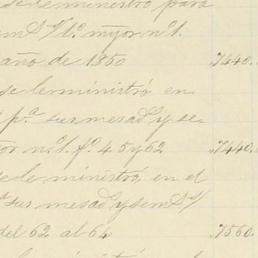 se le ministró para
año de 1850 7440.
se le ministró en
pª sus mesadas y se-
nº 1. fº 45 y 62 7440.
se le ministró en el
sus mesadas y sem
del 62 al 64 7560.